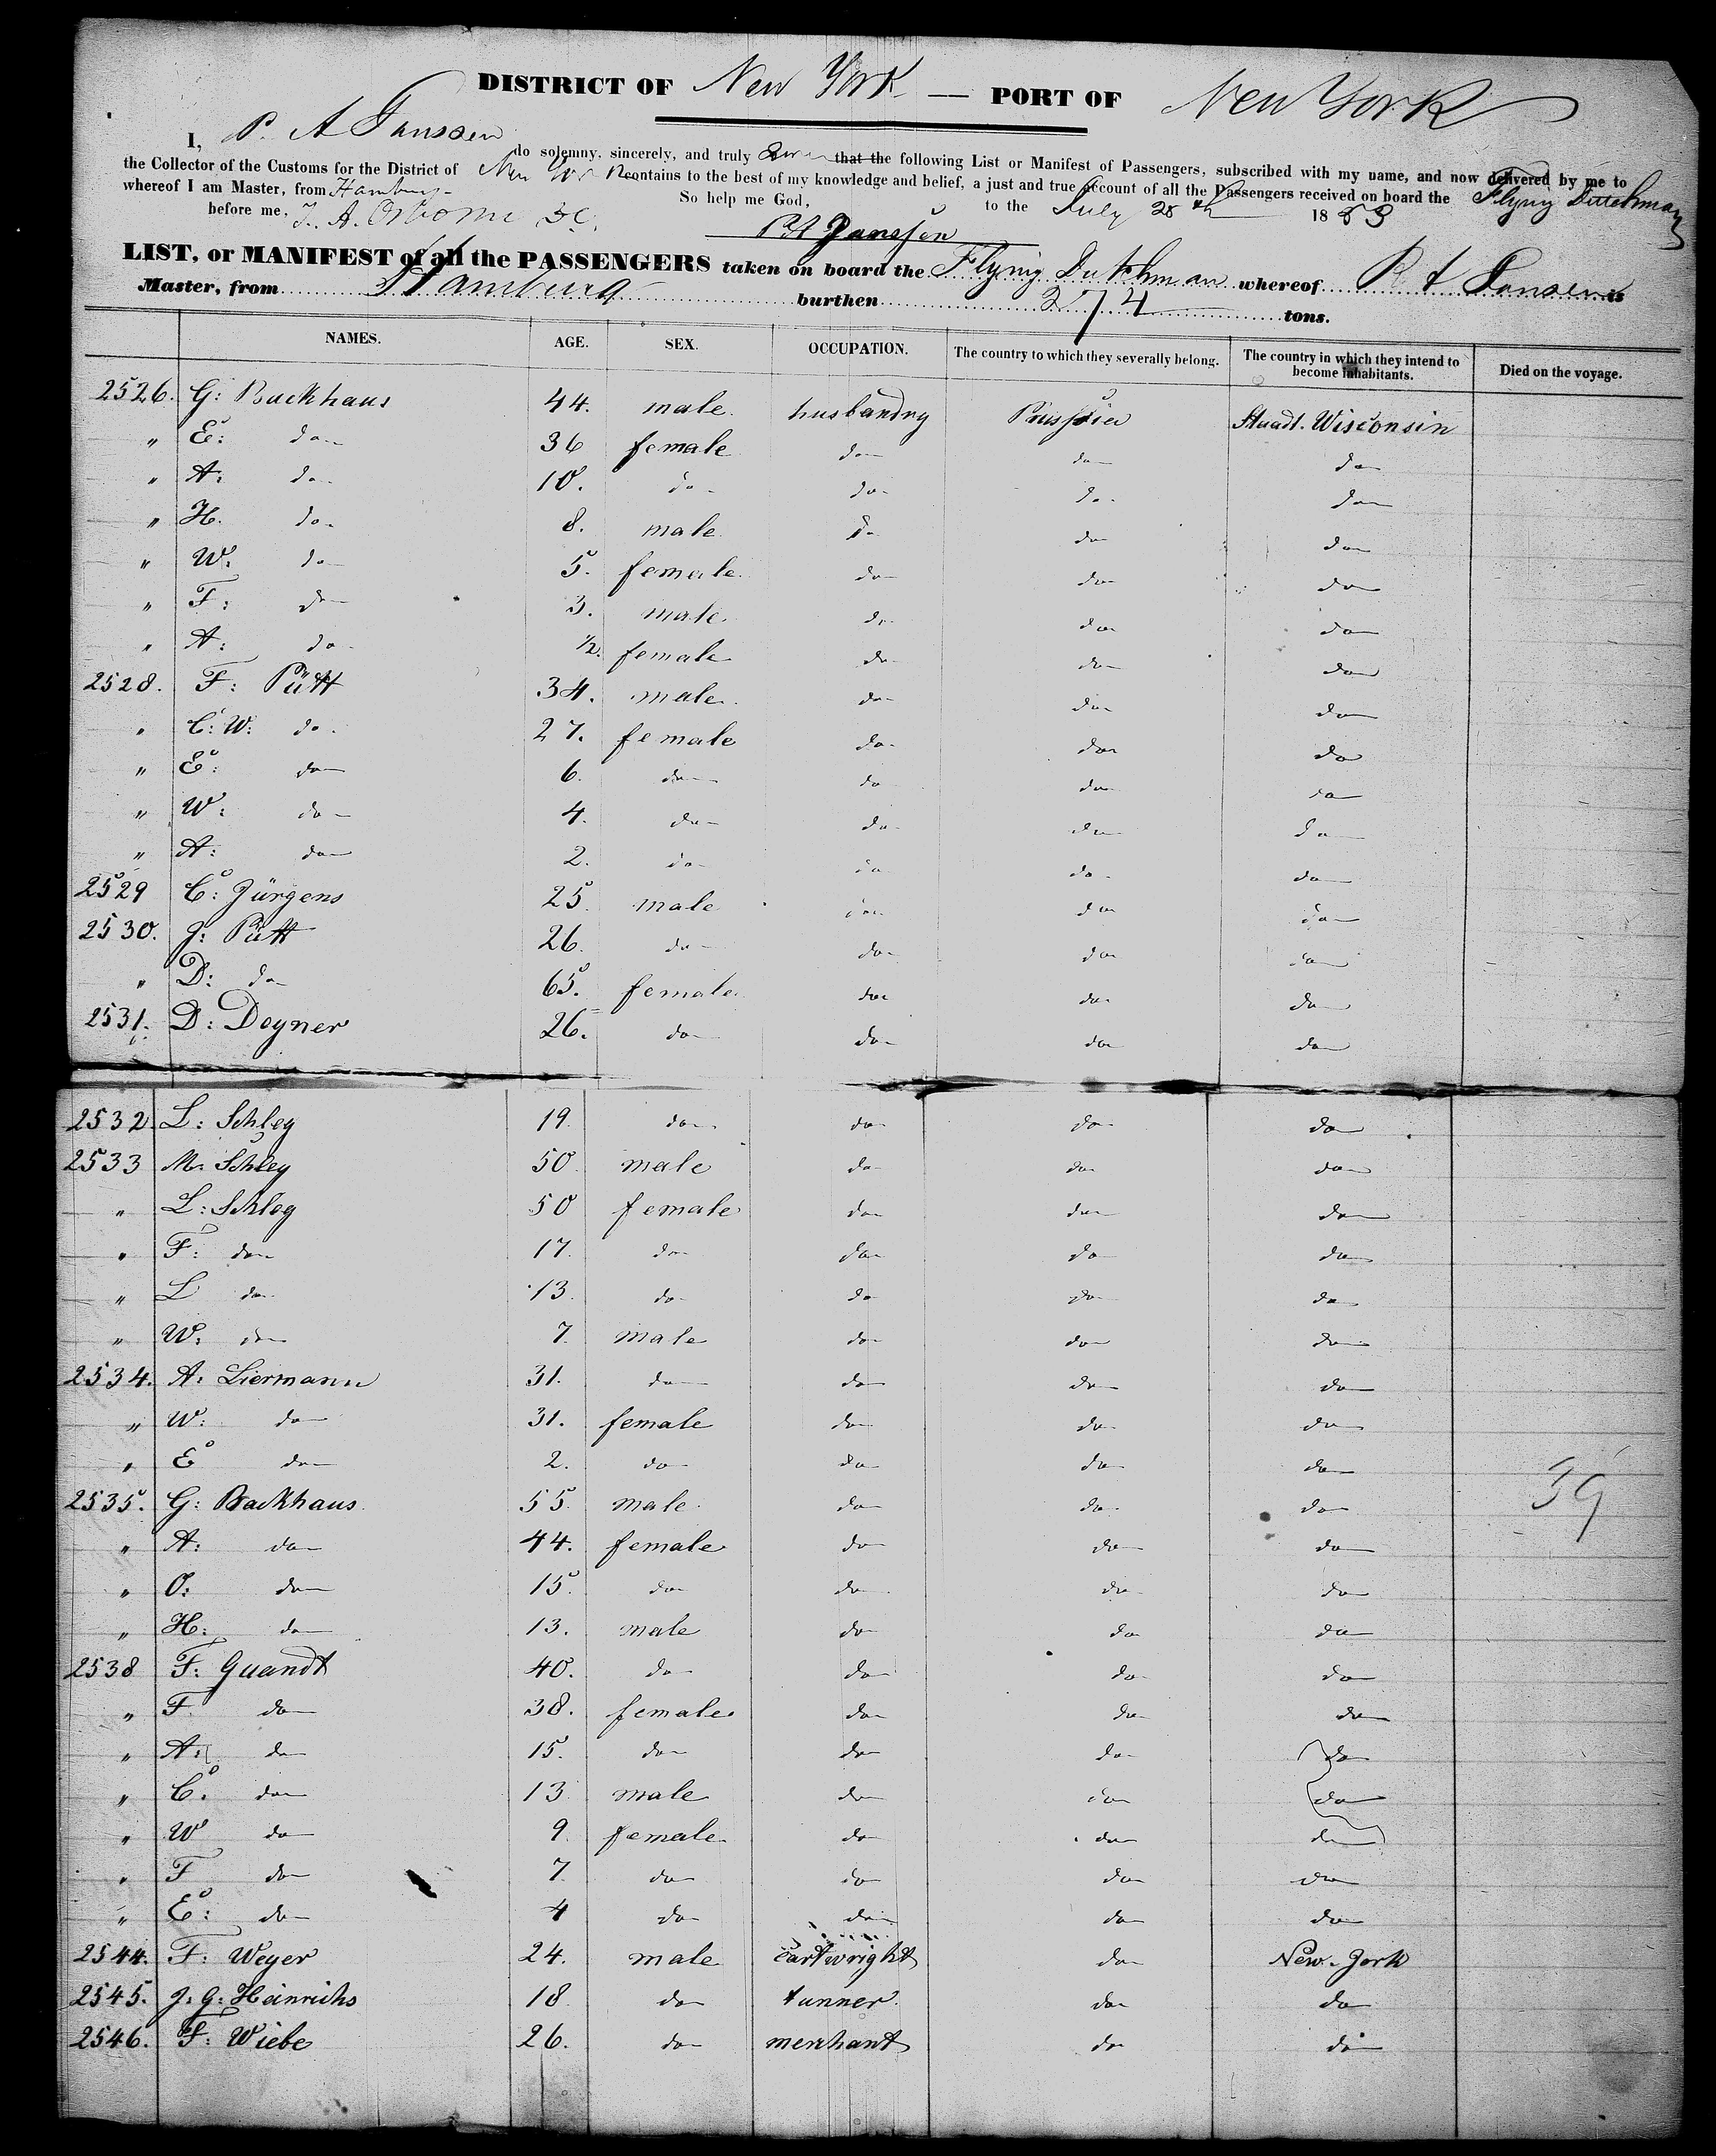 DISTRICT OF New York — PORT OF New York
I, P. A Janssen do solemny, sincerely, and truly swear that the following List or Manifest of Passengers, subscribed with my name, and now delivered by me to
the Collector of the Customs for the District of New York contains to the best of my knowledge and belief, a just and true account of all the Passengers received on board the Flying Dutchman
whereof I am Master, from Hamburg
So help me God,
to the July 28th 1853
before me,
LIST, or MANIFEST of all the PASSENGERS taken on board the Flying Dutchman whereof
Master, from Hamburg burthen 374 tons.
NAMES. AGE. SEX. OCCUPATION. The country to which they severally belong. The country in which they intend to become inhabitants. Died on the voyage.
2526. G: Backhaus 44. male. husbandry Prussia Staadt. Wisconsin
" E: do 36 female do do do
" A: do 10. do do do do
" H. do 8. male do do do
" W: do 5. female do do do
" F: do 3. male do do do
" A: do 1/2. female do do do
2528. F: Pütt 34. male do do do
" C: W: do 27. female do do do
" E: do 6. do do do do
" W: do 4. do do do do
" A: do 2. do do do do
2529 C: Jürgens 25 male do do do
2530. J: Pütt 26. do do do do
" D: do 65. female do do do
2531. D: Doyner 26. do do do do
2532. L: Schley 19. do do do do
2533 M. Schley 50 male do do do
" L: Schley 50 female do do do
" F: do 17. do do do do
" L do 13. do do do do
" W: do 7. male do do do
2534. A: Liermann 31. do do do do
" W: do 31. female do do do
" E do 2. do do do do
2535. G: Backhaus 55. male do do do
" A: do 44. female do do do
" O: do 15. do do do do
" H: do 13. male do do do
39
2538 F: Quandt 40. do do do do
" F do 38. female do do do
" A: do 15. do do do do
" C. do 13 male do do do
" W do 9. female do do do
" F do 7. do do do do
" E: do 4 do do do do
2544. F: Weyer 24. male cartwright do New-York
2545. J: G: Heinrichs 18 do tanner. do do
2546. F: Wiebe 26. do merchant do do